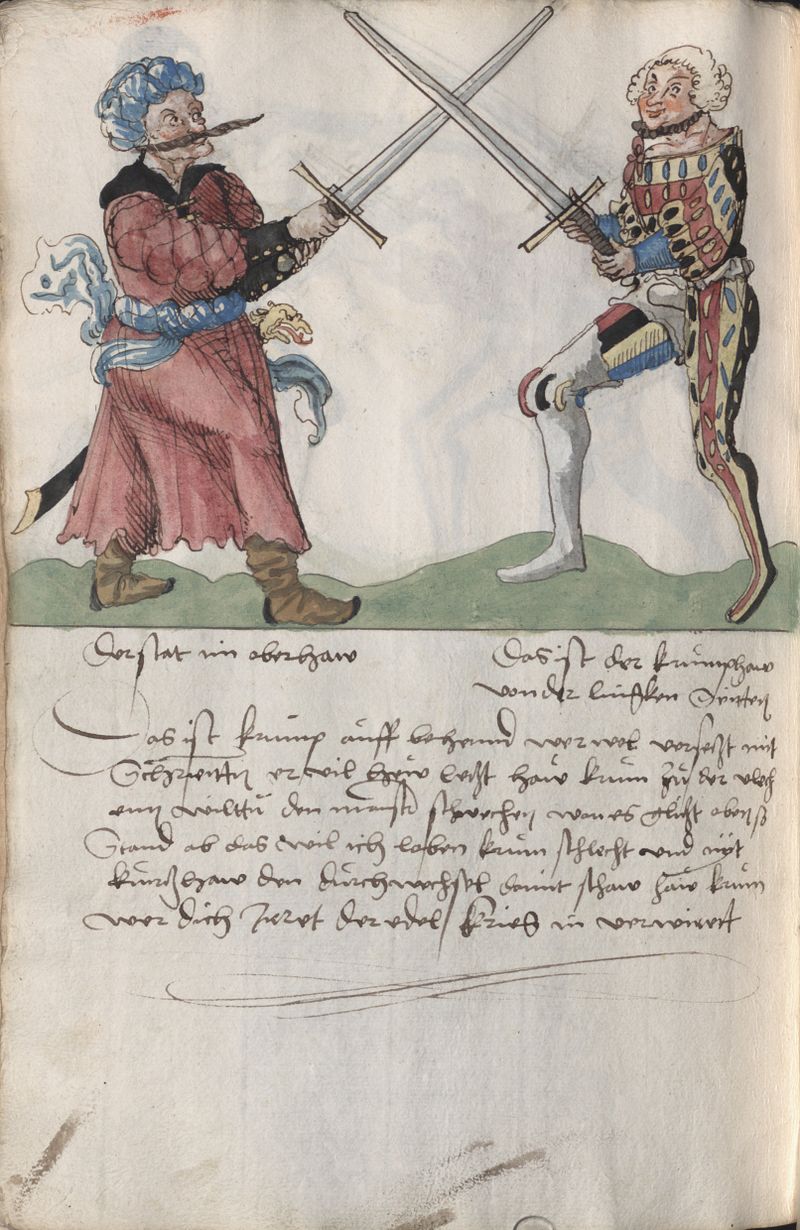 Der stat im oberhaw
Das ist der krumphaw
von der lincken Seitten
Das ist krump auff behennd wer wol versetzt mit
Schreitten er vil hew letzt haw krum zu der vlech
enn wilttu den maister schwechen wan es glitzt oben so
Stand ab das wil ich loben krum schlecht vnd nyt
kurtz haw den durchwechsel damit schaw haw krum
wer dich Irret der edel krieg in verwirrt